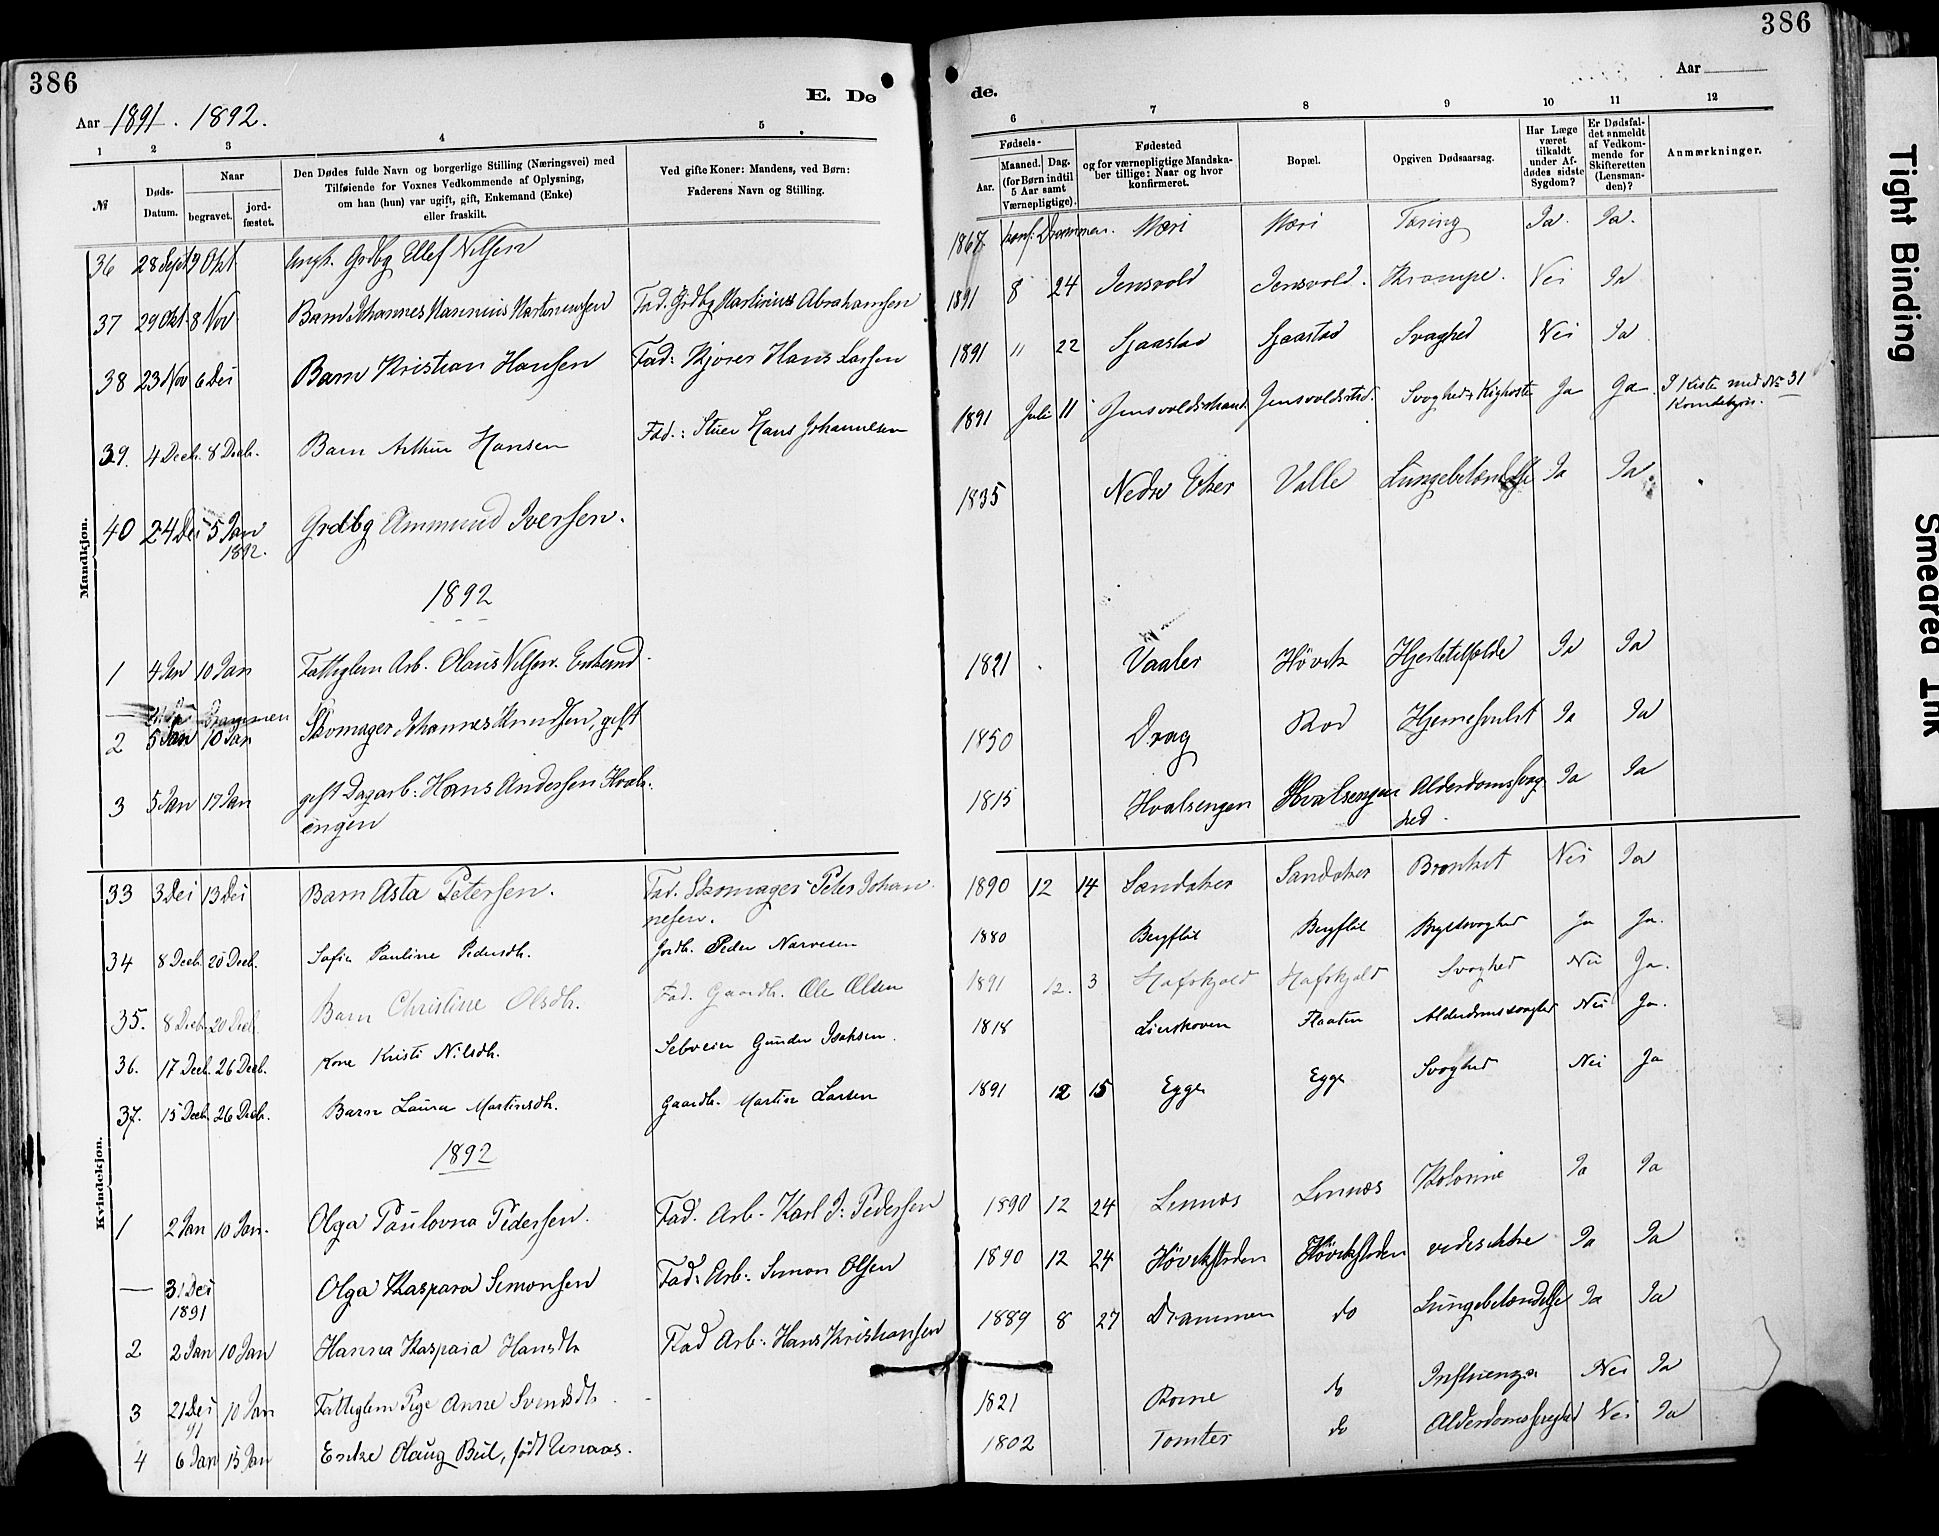 386
386
Aar 1891. 1892.
E. Dø
de.
Aar
1
2
3
4
5
6
7
8
9
10
11
12
№
Døds-
Datum.
Naar
begravet.
jord-
fæstet.
Den Dødes fulde Navn og borgerlige Stilling (Næringsvei) med
Tilføiende for Voxnes Vedkommende af Oplysning,
om han (hun) var ugift, gift, Enkemand (Enke)
eller fraskilt.
Ved gifte Koner: Mandens, ved Børn:
Faderens Navn og Stilling.
Fødsels-
Aar.
Maaned. Dag.
(for Børn indtil
5 Aar samt
Værnepligtige).
Fødested
og for værnepligtige Mandska-
ber tillige: Naar og hvor
konfirmeret.
Bopæl.
Opgiven Dødsaarsag.
Har Læge
været
tilkaldt
under Af-
dødes sidste
Sygdom?
Er Dødsfal-
det anmeldt
af Vedkom-
mende for
Skifteretten
(Lensman-
den)?
Anmærkninger.
Mandkjøn.
36 28 Sept 9 Okt Ungk. Grdbg Ellef Nilsen 1867 konf: Drammen. Tæring Ja. Ja.
37 29 Okt. 8 Nov Barn Johannes Marinius Martinussen Fad. Grdbg Martinius Abrahamsen 1891 8 24 Jensvold Jensvold. Krampe. Nei Ja
38 23 Nov 6 Des Barn Kristian Hansen Fad: Kjører Hans Larsen 1891 11 22 Gjaastad Gjaastad Svaghed Nei Ja
39. 4 Decb. 8 Decb. Barn Arthur Hansen Fad.: Stuer Hans Johannesen 1891 Juli 11 Jensvoldstrand. Jensvoldstrd. Svaghed, Kighoste Ja Ja. I Kiste med No 31
Kvindekjøn.
40 24 Des 5 Jan
1892.
Grdbg Ammund Iversen. 1835 Nedre Eker Valle Lungebetændelse Ja Ja
1892
1 4 Jan 10 Jan Fattiglem Arb. Olaus Nilsen. Enkemd. 1821 Vaaler Høvik Hjertetilfælde Ja Ja
— Drammen
2 5 Jan 10 Jan Skomager Johannes Knudsen, gift 1850 Drag Rød Hjernesvulst Ja Ja
3 5 Jan 17 Jan gift Dagarb: Hans Andersen Hvals-
engen
1815 Hvalsengen Hvalsengen Alderdomssvag-
hed.
Ja Ja
Kvindekjøn.
33 3 Des 13 Des Barn Asta Petersen. Fad. Skomager Peter Johan-
nesen.
1890 12 14 Sandaker Sandaker Bronkit Nei Ja
34 8 Decb. 20 Decb. Sofie Pauline Pedersdh. Jordb. Peder Narvesen 1880 Bergflöt Bergflöt Brystsvaghed Ja Ja.
35. 8 Decb. 20 Decb. Barn Christine Olsdh. Fad. Gaardb. Ole Olsen 1891 12. 3 Hafskjold Hafskjold Svaghed Nei Ja.
36. 17 Decb. 26 Decb. Kone Kristi Nilsdh. Selveier Gunder Isaksen. 1818 Lierskoven Flaaten Alderdomssvaghed Nei Ja.
37. 15 Decb. 26 Decb. Barn Laura Martinsdh. Gaardb. Martin Larsen 1891 12 15 Egge Egge Svaghed Nei Ja
1892
1 2 Jan 10 Jan. Olga Paulovna Pedersen. Fad. Arb. Karl J. Pedersen 1890 12 24 Linnæs Linnæs Kolerine Ja Ja
— 31 Des
1891
Olga Kaspara Simonsen Fad: Arb: Simon Olsen 1890 12 24 Høvikstøden Høvikstøden Ja Ja
2 2 Jan 10 Jan Hanna Kaspara Hansdtr Fad Arb: Hans Kristiansen 1889 8 27 Drammen do Lungebetændelse Ja Ja
3 21 Des
91
10 Jan Fattiglem Pige Anne Svendsdtr. 1821 do Influenza Nei Ja
4 6 Jan 15 Jan Enke Olaug Bül, født 1802 Tomter do Alderdomssvaghed Nei Ja
Tight Binding
Smeared Ink